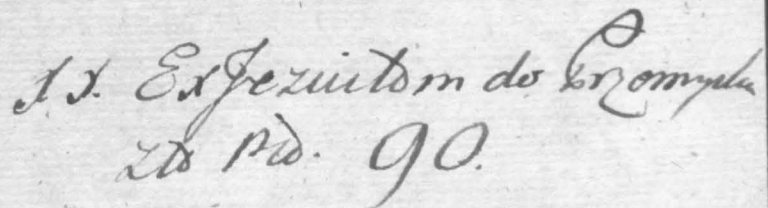 XX. ExJezuitom do Przemyśla
zło Pid. 90.